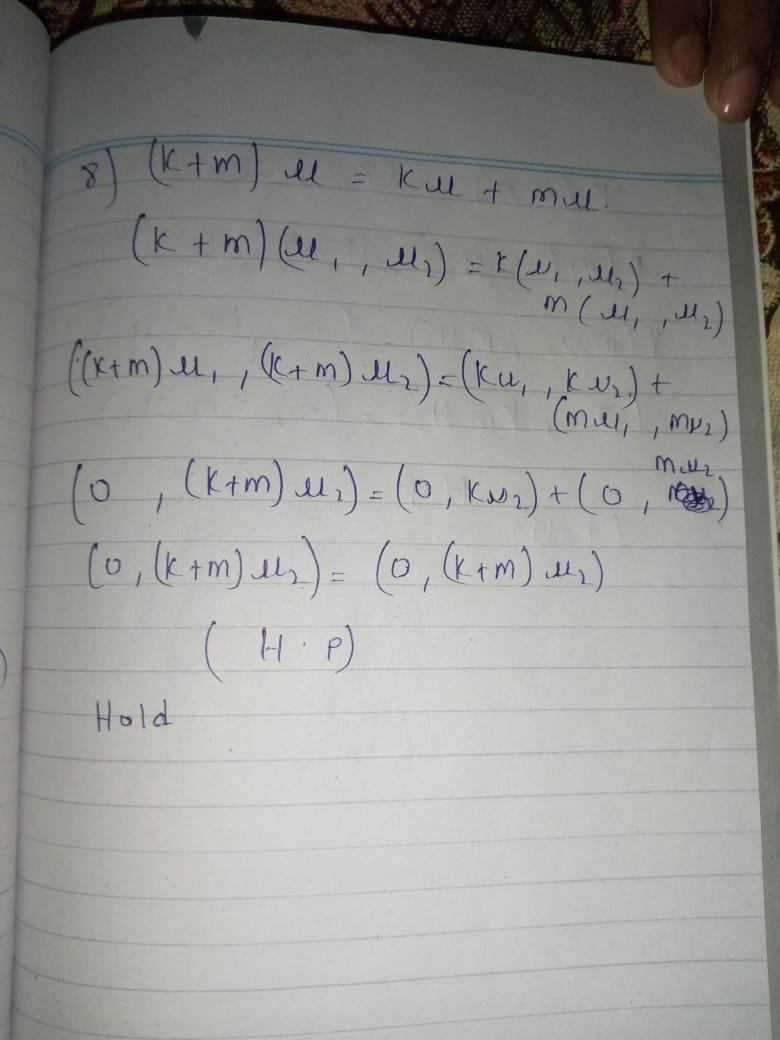 8) (K+m) u = Ku + mu.
(K+m)(u₁, u₂) = K(u₁, u₂) +
m(u₁, u₂)
((K+m)u₁, (K+m)u₂) = (Ku₁, Ku₂) +
(mu₁, mu₂)
mu₂
(0, (K+m)u₂) = (0, Ku₂) + (0, )
(0, (K+m)u₂) = (0, (K+m)u₂)
(H.P)
Hold